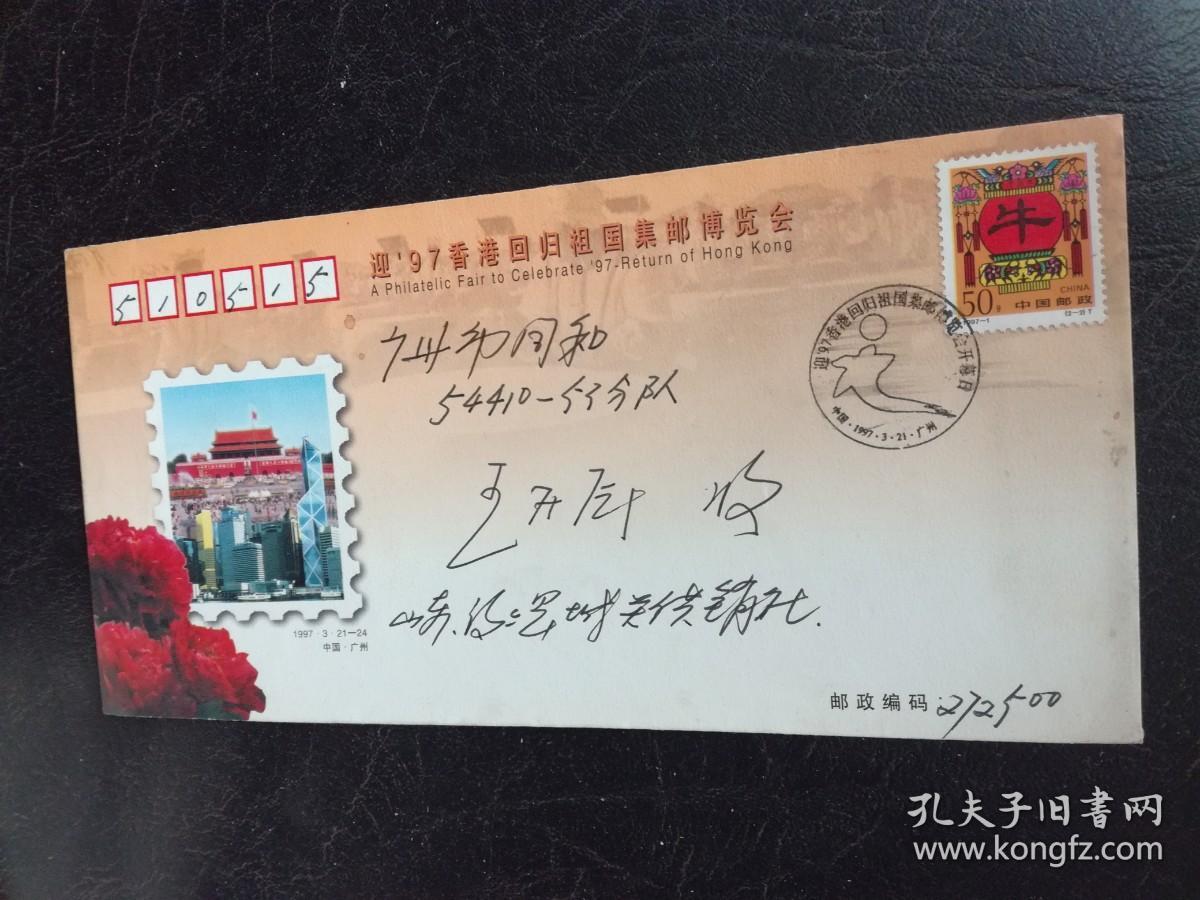 迎'97香港回归祖国集邮博览会
A Philatelic Fair to Celebrate '97-Return of Hong Kong
510515
牛
CHINA
50分 中国邮政
1997-1 (2-2)T
迎'97香港回归祖国集邮博览会开幕日
中国·1997·3·21·广州
广州市同和
54410-
分队
王开 收
1997·3·21—24
中国·广州
山东 城关供销社.
邮政编码:272500
孔夫子旧書网
www.kongfz.com